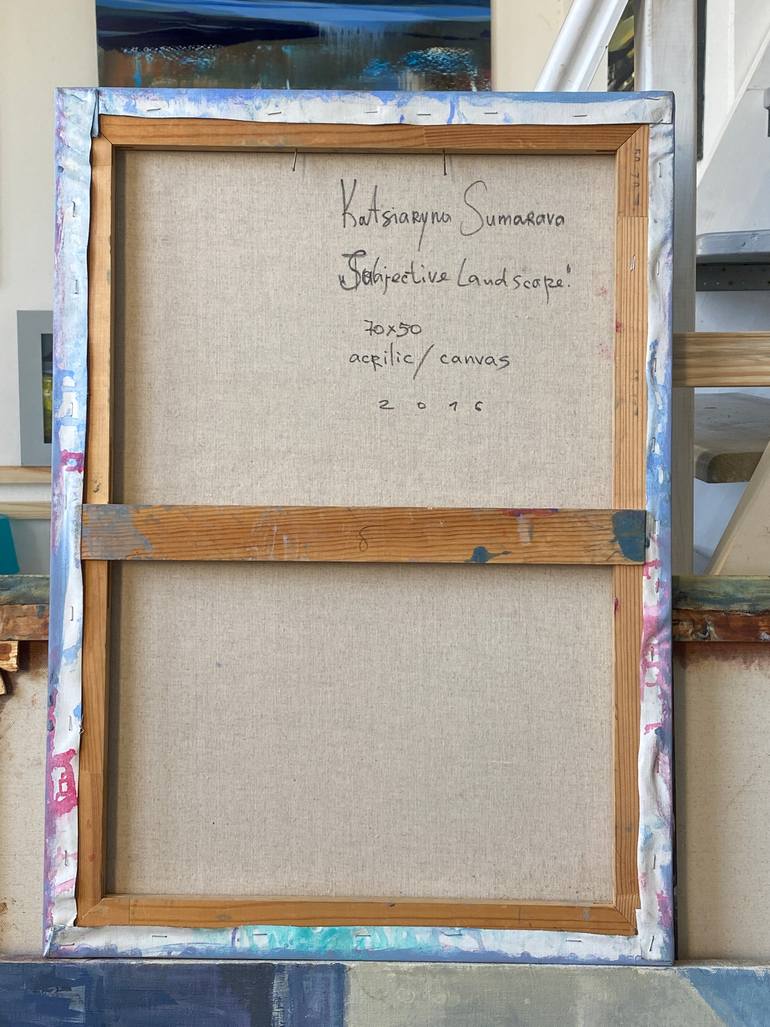 Katsiaryna Sumarava
„Subjective Landscape“
70x50
acrilic / canvas
2016